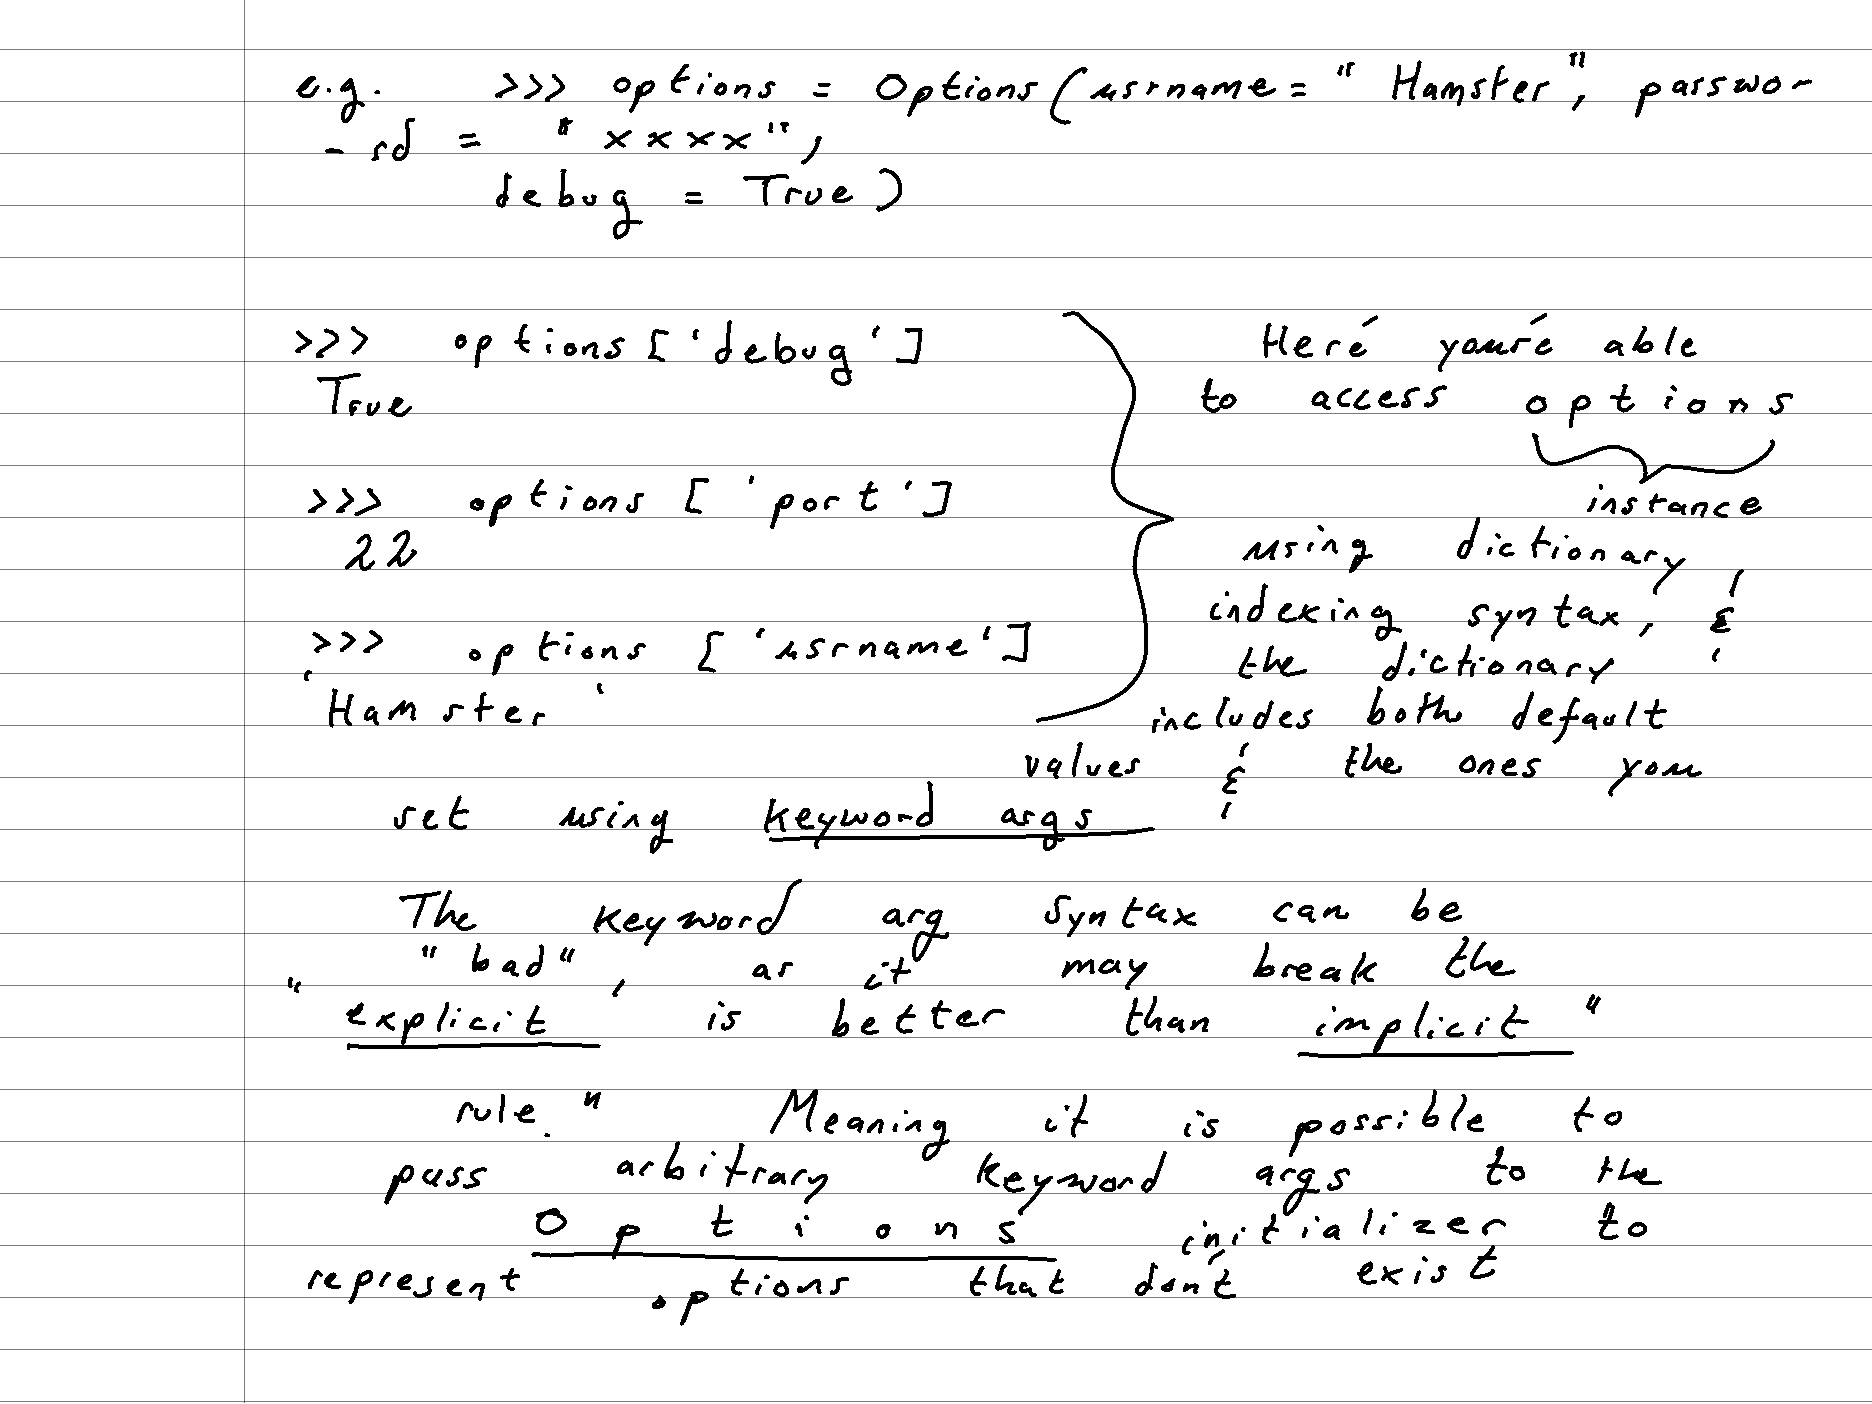 e.g. >>> options = Options(usrname = "Hamster", passwo-
- rd = "xxxx",
debug = True)
>>> options['debug']
True
>>> options ['port']
22
>>> options ['usrname']
'Hamster'
Here' you're able
to access options
instance
using dictionary
indexing syntax, &
the dictionary
includes both default
values & the ones you
set using keyword args
The keyword arg syntax can be
"bad", as it may break the
"explicit is better than implicit"
rule." Meaning it is possible to
pass arbitrary keyword args to the
Options initializer to
represent options that don't exist